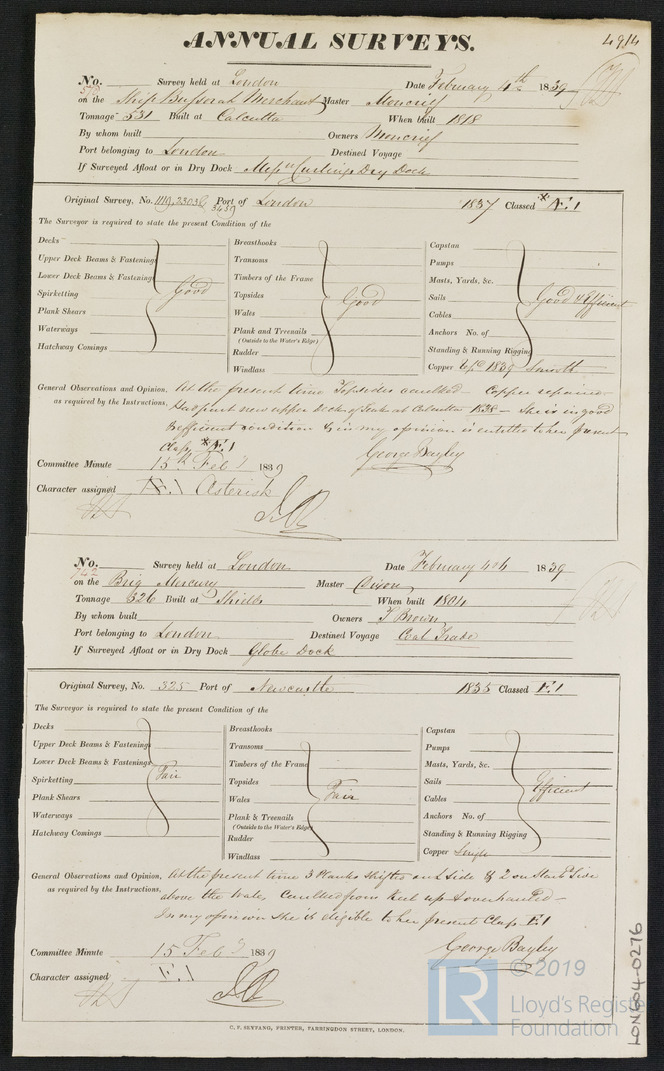 ANNUAL SURVEYS.
4914
No. Survey held at London Date February 4th 1839
on the Ship Bussorah Merchant Master Moncrief
Tonnage 531 Built at Calcutta When built 1818
By whom built Owners Moncrief
Port belonging to London Destined Voyage
If Surveyed Afloat or in Dry Dock Mess Curlings Dry Dock
Original Survey, No. 1119, 23036 Port of London 1837 Classed * Æ.1
3439
The Surveyor is required to state the present Condition of the
Decks
Upper Deck Beams & Fastenings
Lower Deck Beams & Fastenings
Spirketting Good
Plank Shears
Waterways
Hatchway Comings
Breasthooks
Transoms
Timbers of the Frame
Topsides Good
Wales
Plank and Treenails
(Outside to the Water's Edge)
Rudder
Windlass
Capstan
Pumps
Masts, Yards, &c.
Sails Good & Efficient
Cables
Anchors No. of
Standing & Running Rigging
Copper 1839 Smooth
General Observations and Opinion, At the present time Topsides caulked – Copper repaired
as required by the Instructions. Had part new upper deck of Teak at Calcutta 1838 – She is in good
& efficient condition & in my opinion is entitled to her present
Class * Æ.1
George Bayley
Committee Minute 15th Feby 1839
Character assigned Æ.1 Asterisk
No. Survey held at London Date February 4th 1839
742
on the Brig Mercury Master Dixon
Tonnage 326 Built at Shields When built 1804
By whom built Owners T Brown
Port belonging to London Destined Voyage Coal Trade
If Surveyed Afloat or in Dry Dock Globe Dock
Original Survey, No. 325 Port of Newcastle 1835 Classed E.1
The Surveyor is required to state the present Condition of the
Decks
Upper Deck Beams & Fastenings
Lower Deck Beams & Fastenings
Spirketting Fair
Plank Shears
Waterways
Hatchway Comings
Breasthooks
Transoms
Timbers of the Frame
Topsides
Wales Fair
Plank & Treenails
(Outside to the Water's Edge)
Rudder
Windlass
Capstan
Pumps
Masts, Yards, &c.
Sails Efficient
Cables
Anchors No. of
Standing & Running Rigging
Copper Single
General Observations and Opinion, At the present time 3 Planks shifted on L Side & 2 on Starbd Side
as required by the Instructions. above the Wales, Caulked from Keel up & overhauled –
In my opinion she is eligible to her present Class E.1
George Bayley
Committee Minute 15 Feby 1839
Character assigned E.1
C. F. SEYFANG, PRINTER, FARRINGDON STREET, LONDON.
LR
© 2019
Lloyd's Register
Foundation
LON604-0276